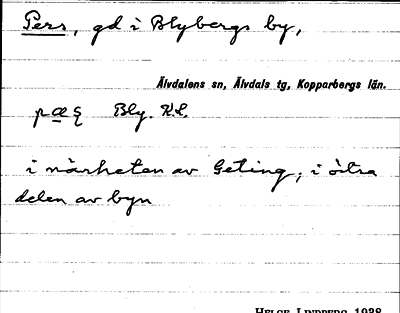 Pers, gd i Blybergs by,
Älvdalens sn, Älvdals tg, Kopparbergs län.
pæʂ Bly. K.L.
i närheten av Geting, i östra
delen av byn
HELGE LINDBERG 1938